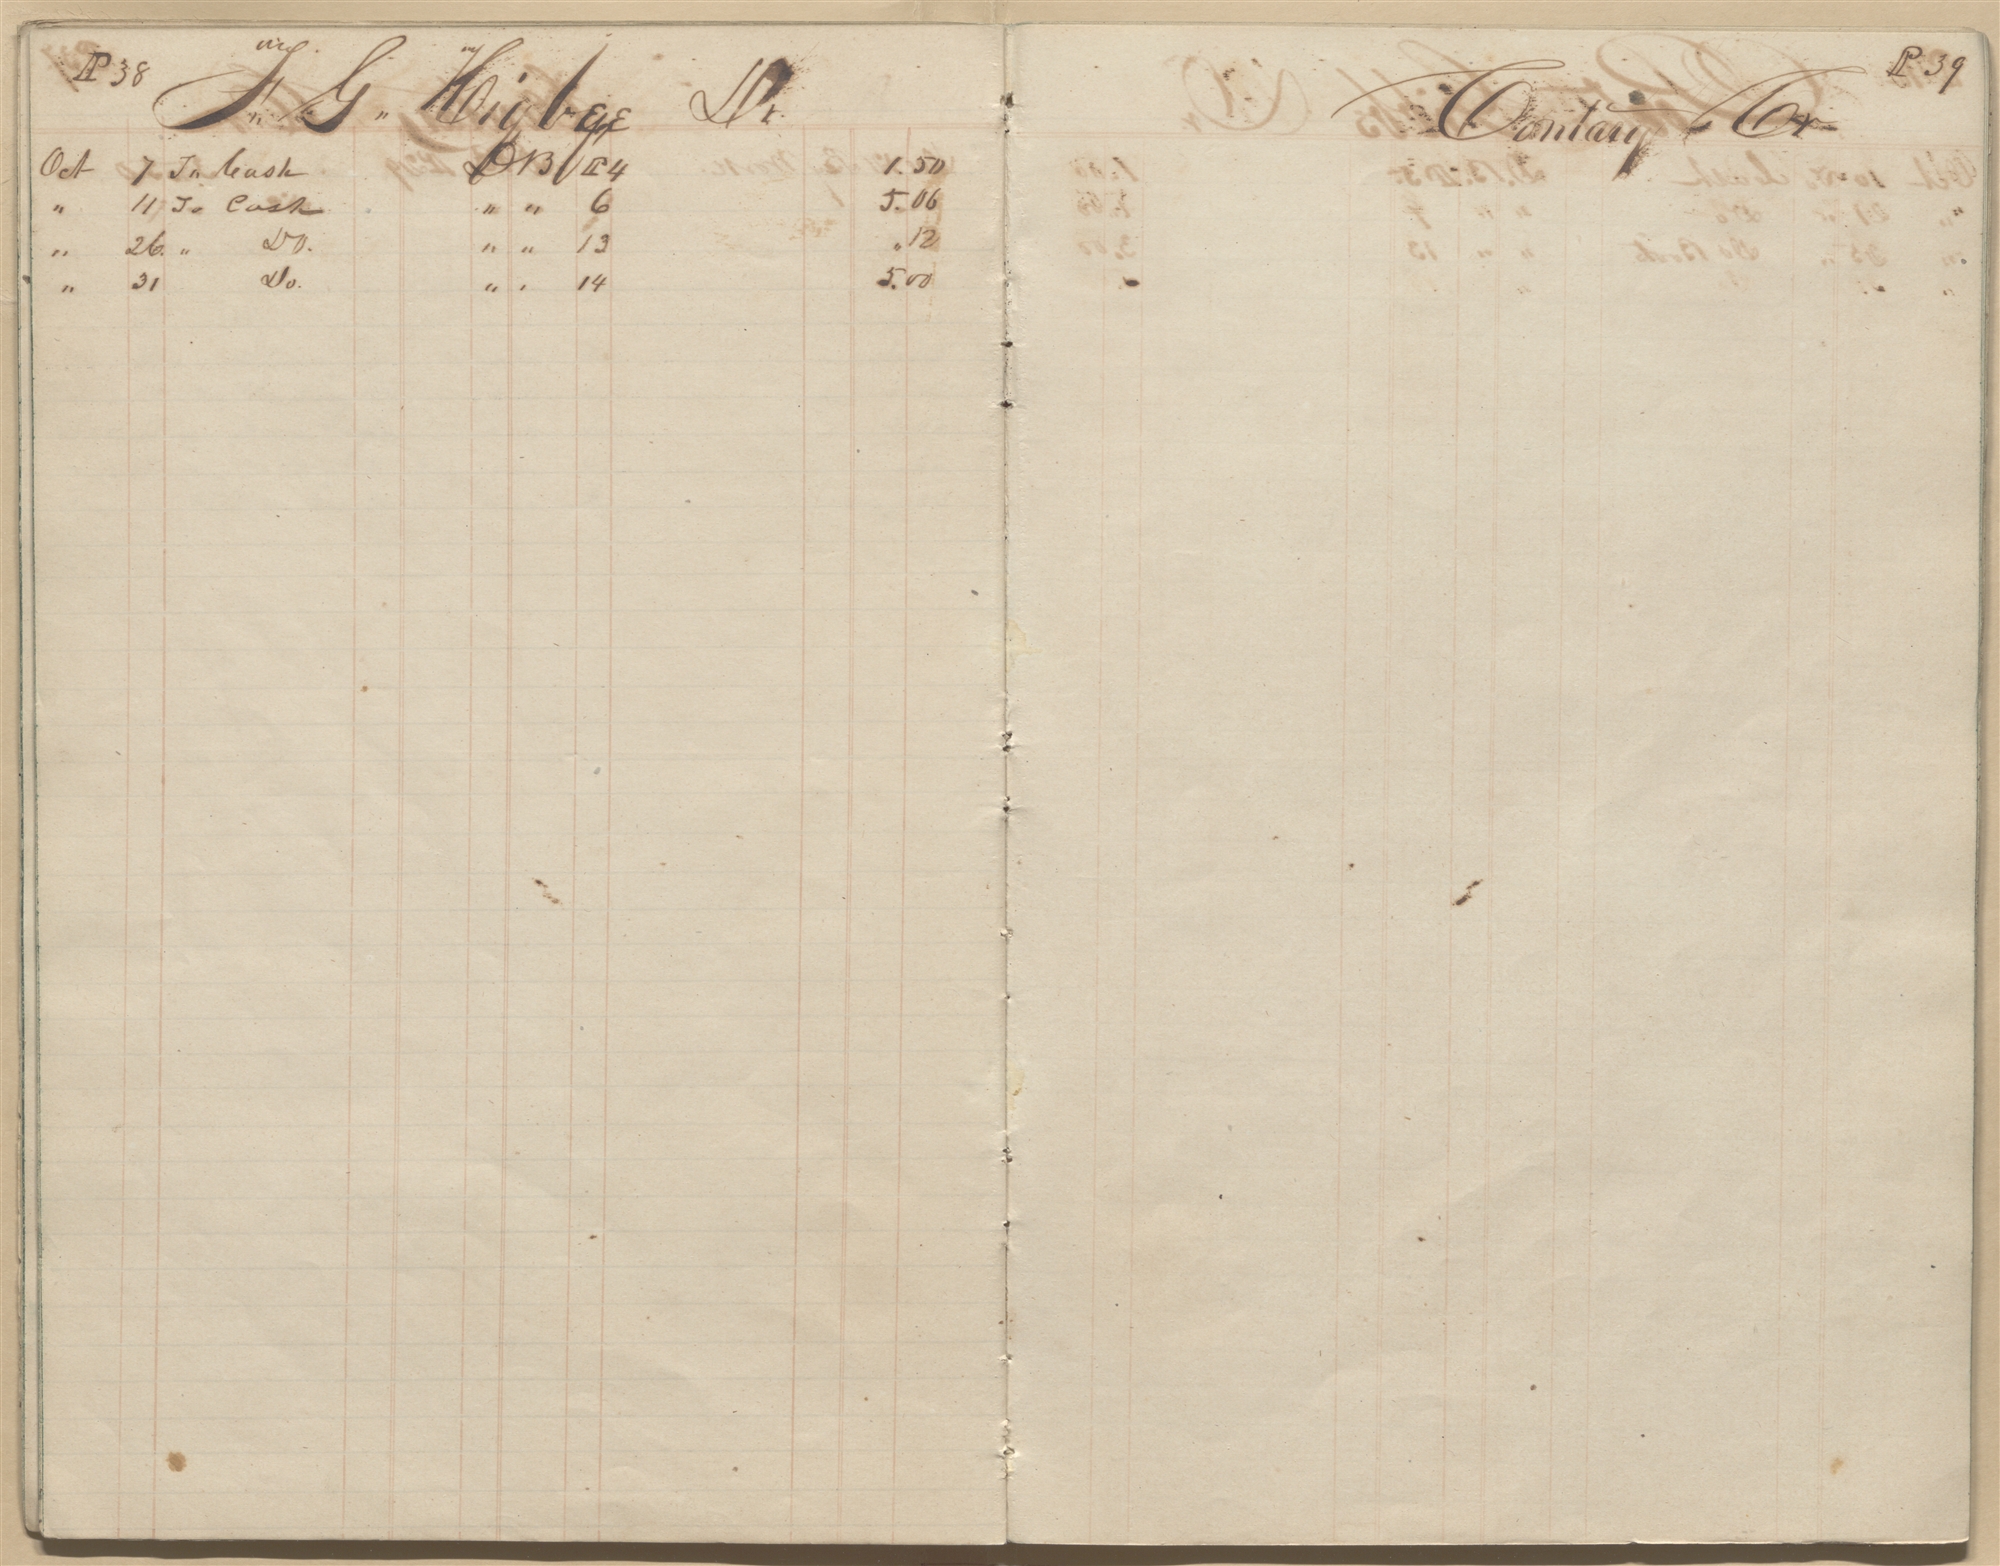 P 38
J. G. Higbee Dr
Oct 7 To Cash DB P 4 1.50
" 11 To Cash " " 6 5.06
" 26 " Do. " " 13 " 12
" 31 Do. " " 14 5.00
P 39
Contary Cr